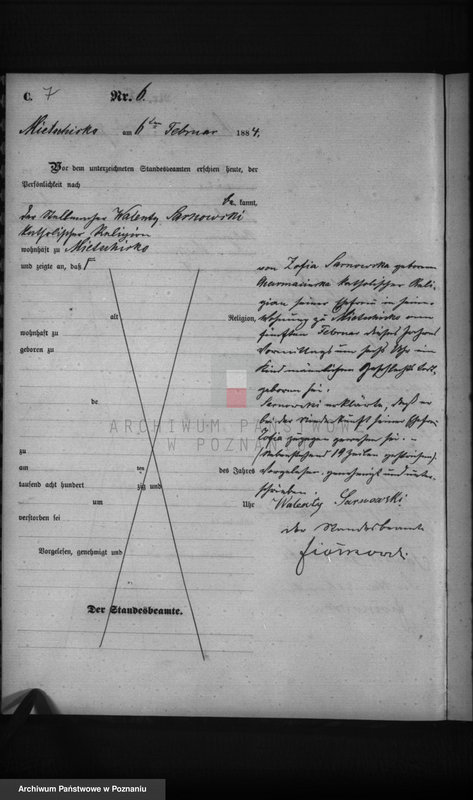 C. 7 Nr. 6.
Mietschisko am 6ten Februar 1884.
Vor dem unterzeichneten Standesbeamten erschien heute, der
Persönlichkeit nach
be kannt,
der Stellmacher Walenty Sarnowski
katholischer Religion
wohnhaft zu Mietschisko
und zeigte an, daß
von Zofia Sarnowska geborene
katholischer Reli-
gion seiner Ehefrau in seiner
Wohnung zu Mietschisko am
fünften Februar dieses Jahres
Vormittags um sechs Uhr ein
Kind männlichen Geschlechts todt
geboren sei.
Sarnowski erklärte, daß er
bei der Niederkunft seiner Ehefrau
Zofia zugegen gewesen sei. –
(Nebenstehend 19 Zeilen gestrichen).
Vorgelesen, genehmigt und unter-
schrieben
Walenty Sarnowski
der Standesbeamte
alt Religion,
wohnhaft zu
geboren zu
de
zu
am ten des Jahres
tausend acht hundert zig und
um Uhr
verstorben sei
Vorgelesen, genehmigt und
Der Standesbeamte.
ARCHIWUM PAŃSTWOWE
W POZNANIU
Archiwum Państwowe w Poznaniu